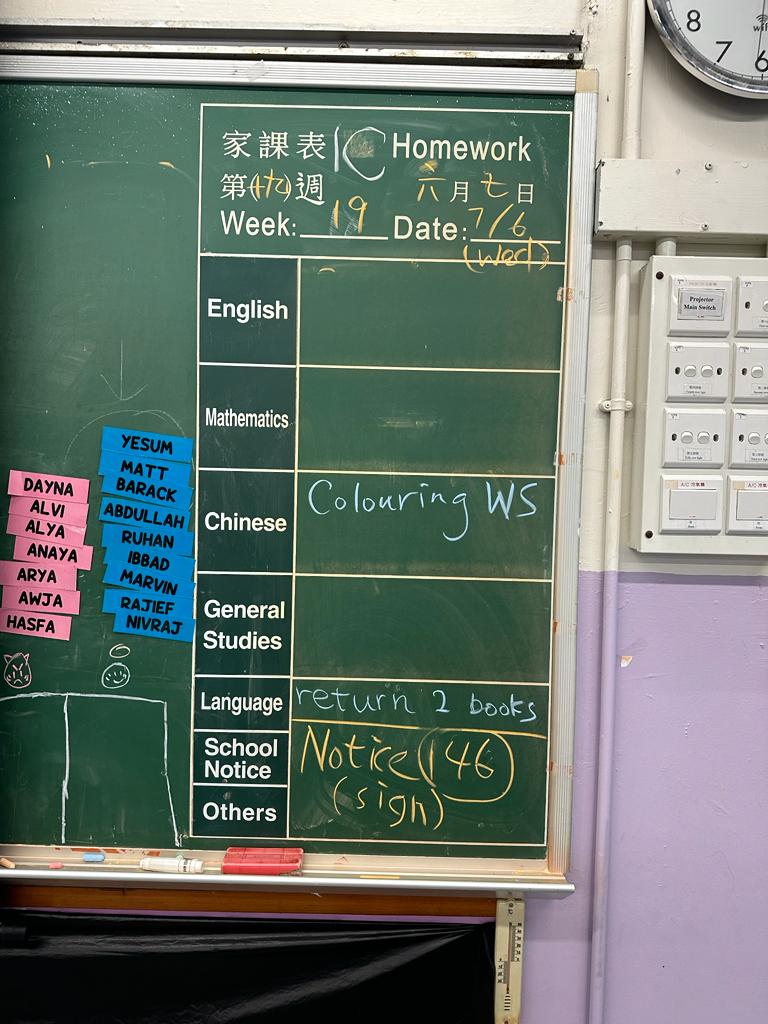 家課表 1C Homework
第(十九)週 六月七日
Week: 19 Date: 7/6
(Wed)
English
Mathematics
Chinese Colouring WS
General
Studies
Language return 2 books
School
Notice
Notice 146
(sign)
Others
YESUM
MATT
BARACK
ABDULLAH
RUHAN
IBBAD
MARVIN
RAJIEF
NIVRAJ
DAYNA
ALVI
ALYA
ANAYA
ARYA
AWJA
HASFA
8
7
6
wifi
Projector
Main Switch
A/C 冷氣機
A/C 冷氣